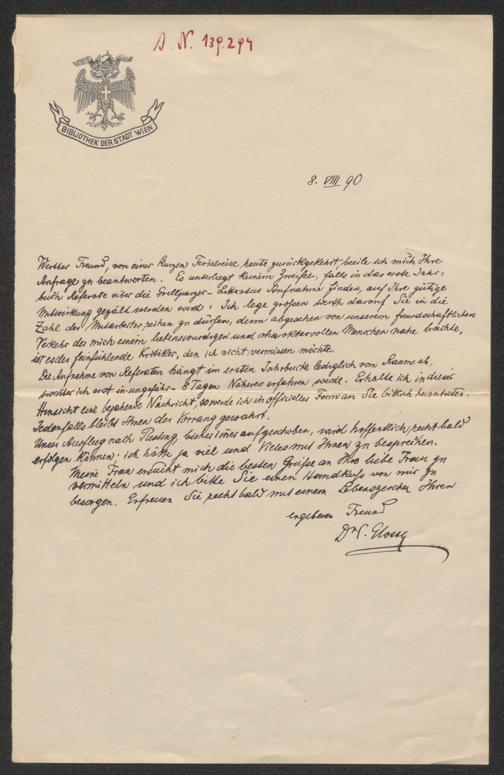 A. N. 139.294
BIBLIOTHEK DER STADT WIEN
8. VIII 90
Werther Freund, von einer kurzen Ferialreise heute zurückgekehrt, beeile ich mich Ihre
Anfrage zu beantworten. Es unterliegt keinem Zweifel, falls in das erste Jahr-
buch Referate über die Grillparzer-Litteratur Aufnahme finden, auf Ihre gütige
Mitwirkung gezält werden wird. Ich lege großen Werth darauf Sie in die
Zahl der Mitarbeiter reihen zu dürfen, denn abgesehen von unserem freundschaftlichen
Verkehr der mich einem liebenswürdigen und charaktervollen Menschen nahe brachte,
ist es der feinfühlende Kritiker, den ich nicht vermissen möchte.
Die Aufnahme von Referaten hängt im ersten Jahrbuche lediglich vom Raume ab,
worüber ich erst in ungefähr 8 Tagen Näheres erfahren werde. Erhalte ich in dieser
Hinsicht eine bejahende Nachricht, so werde ich in officieller Form an Sie bittlich herantreten.
Jedenfalls bleibt Ihnen der Vorrang gewahrt.
Unser Ausflug nach Piesting, bisher immer aufgeschoben, wird hoffentlich recht bald
erfolgen können; ich hätte ja viel und Vieles mit Ihnen zu besprechen.
Meine Frau ersucht mich die besten Grüße an Ihre liebe Frau zu
vermitteln und ich bitte Sie einen Handkuss von mir zu
besorgen. Erfreuen Sie recht bald mit einem Lebenszeichen Ihren
ergebenen Freund
Dr C. Glossy